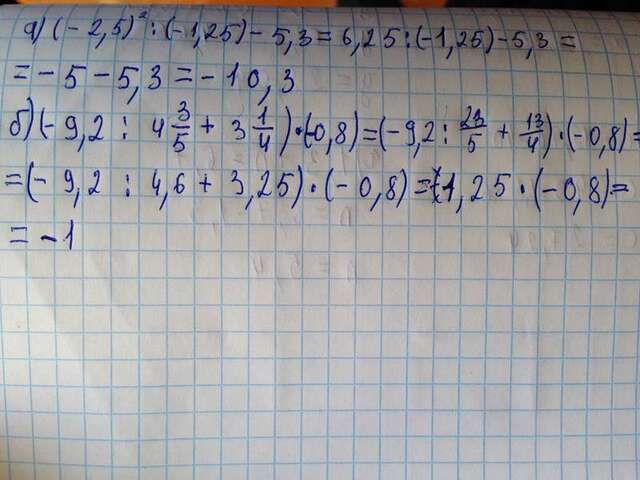 а) (-2,5)² : (-1,25) - 5,3 = 6,25 : (-1,25) - 5,3 =
= - 5 - 5,3 = - 10,3
б) (- 9,2 : 4 3/5 + 3 1/4) · (-0,8) = (- 9,2 : 23/5 + 13/4) · (-0,8) =
= (- 9,2 : 4,6 + 3,25) · (-0,8) = 1,25 · (-0,8) =
= - 1